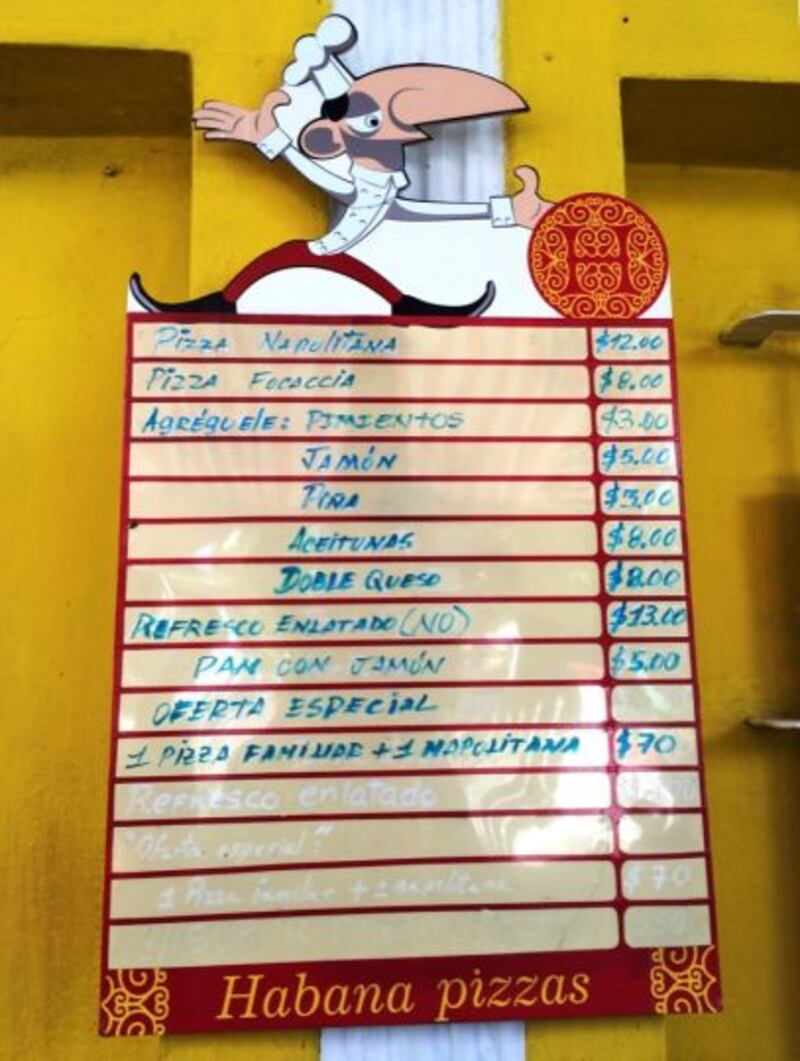 Pizza Napolitana $12.00
Pizza Focaccia $8.00
Agréguele: Pimientos $3.00
Jamón $5.00
Piña $3.00
Aceitunas $8.00
Doble Queso $8.00
Refresco Enlatado (NO) $13.00
Pan con Jamón $5.00
Oferta Especial
1 Pizza Familiar + 1 Napolitana $70
Refresco enlatado
"Oferta especial"
1 Pizza familiar + 1 napolitana $70
Habana pizzas